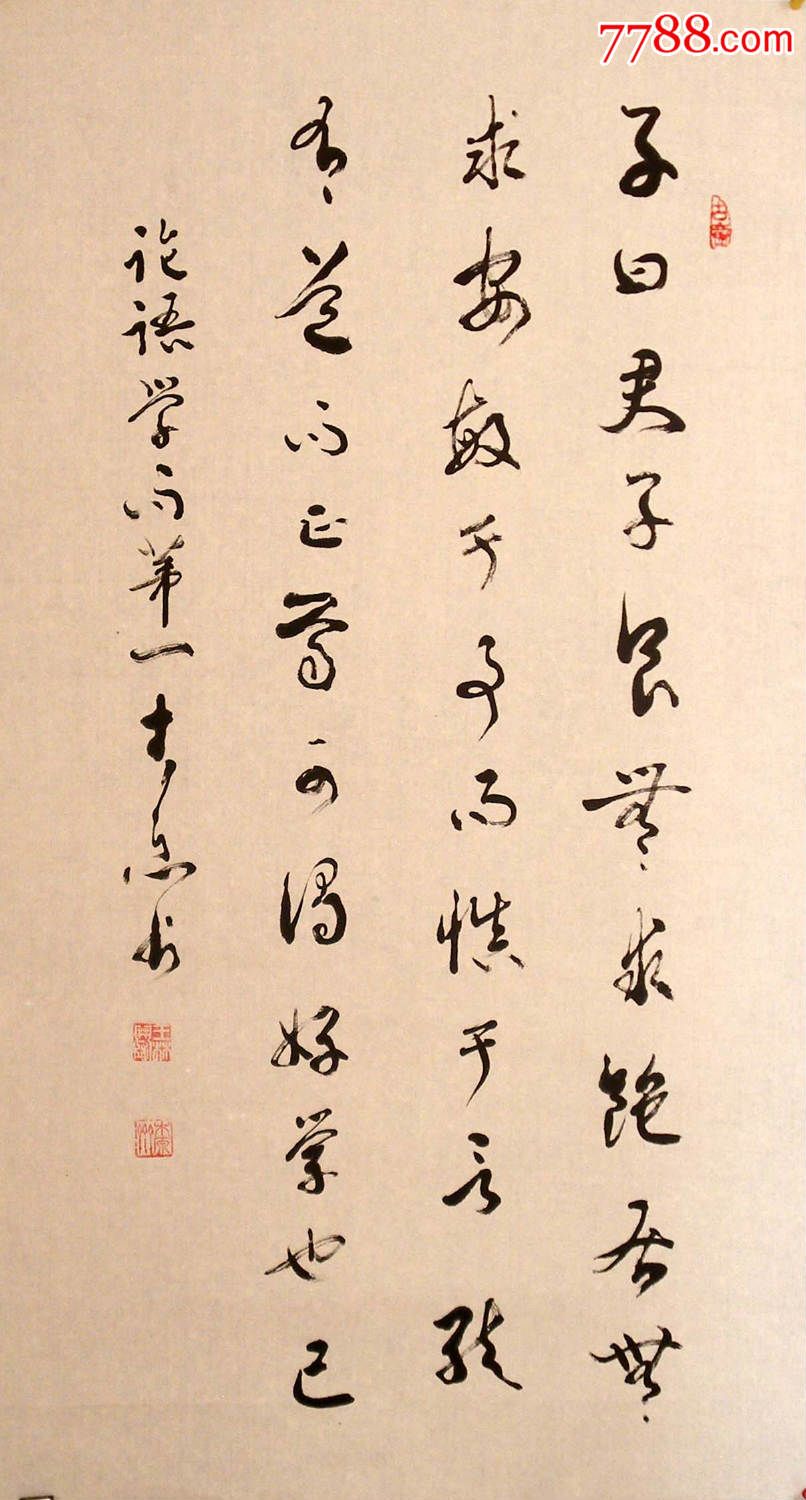 7788.com
子曰君子食無求飽居無
求安敏于事而慎于言就
有道而正焉可謂好学也已
論語学而第一書